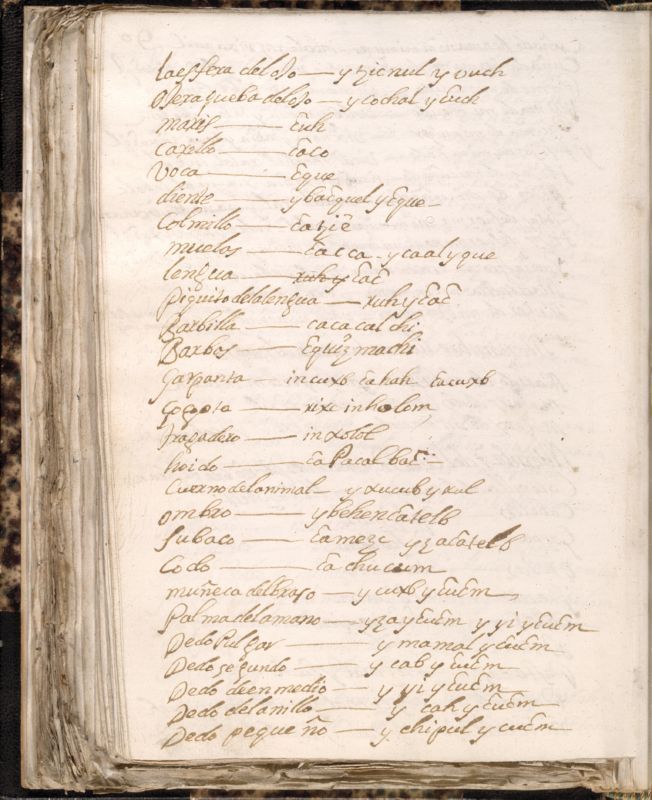 la esfera del oJo — y zic nul y vuch
O sera queba del oJo — y cochal y c̄uch
maris — c̄uh
carillo — c̄aco
Voca — c̄que
diente — y bac̄quel y c̄que
Colmillo — c̄a tzic̄
muelas — c̄acca - y caal y que
lengua — xuh y c̄ac̄
Piquito de la lengua — xuh y c̄ac̄
Barbilla — cacacal chi
Barbas — c̄quizmachi
garganta — in cuxb c̄ahah c̄acuxb
gogota — xixc in holom
tragadero — in xolol
hoido — c̄a Pacal bac̄
Cuerno del animal — y xucub y xul
ombro — y behen c̄a telb
Subaco — c̄a merc y za c̄a telb
Codo — c̄a chucum
muñeca del braso — y cuxb y c̄uc̄m
Palma de la mano — y za y c̄uc̄m y yi y c̄uc̄m
Dedo Pulgar — y mamal y c̄uc̄m
Dedo segundo — y cab y c̄uc̄m
Dedo de en medio — y yi y c̄uc̄m
Dedo del anillo — y cah y c̄uc̄m
Dedo pequeño — y chipul y c̄uc̄m